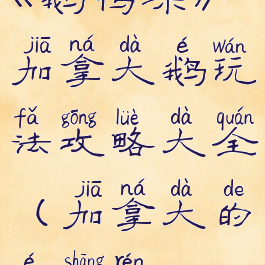 《鹅鸭杀》
jiā ná dà é wán
加拿大鹅玩
fǎ gōng lüè dà quán
法攻略大全
jiā ná dà de
（加拿大的
é shāng rén